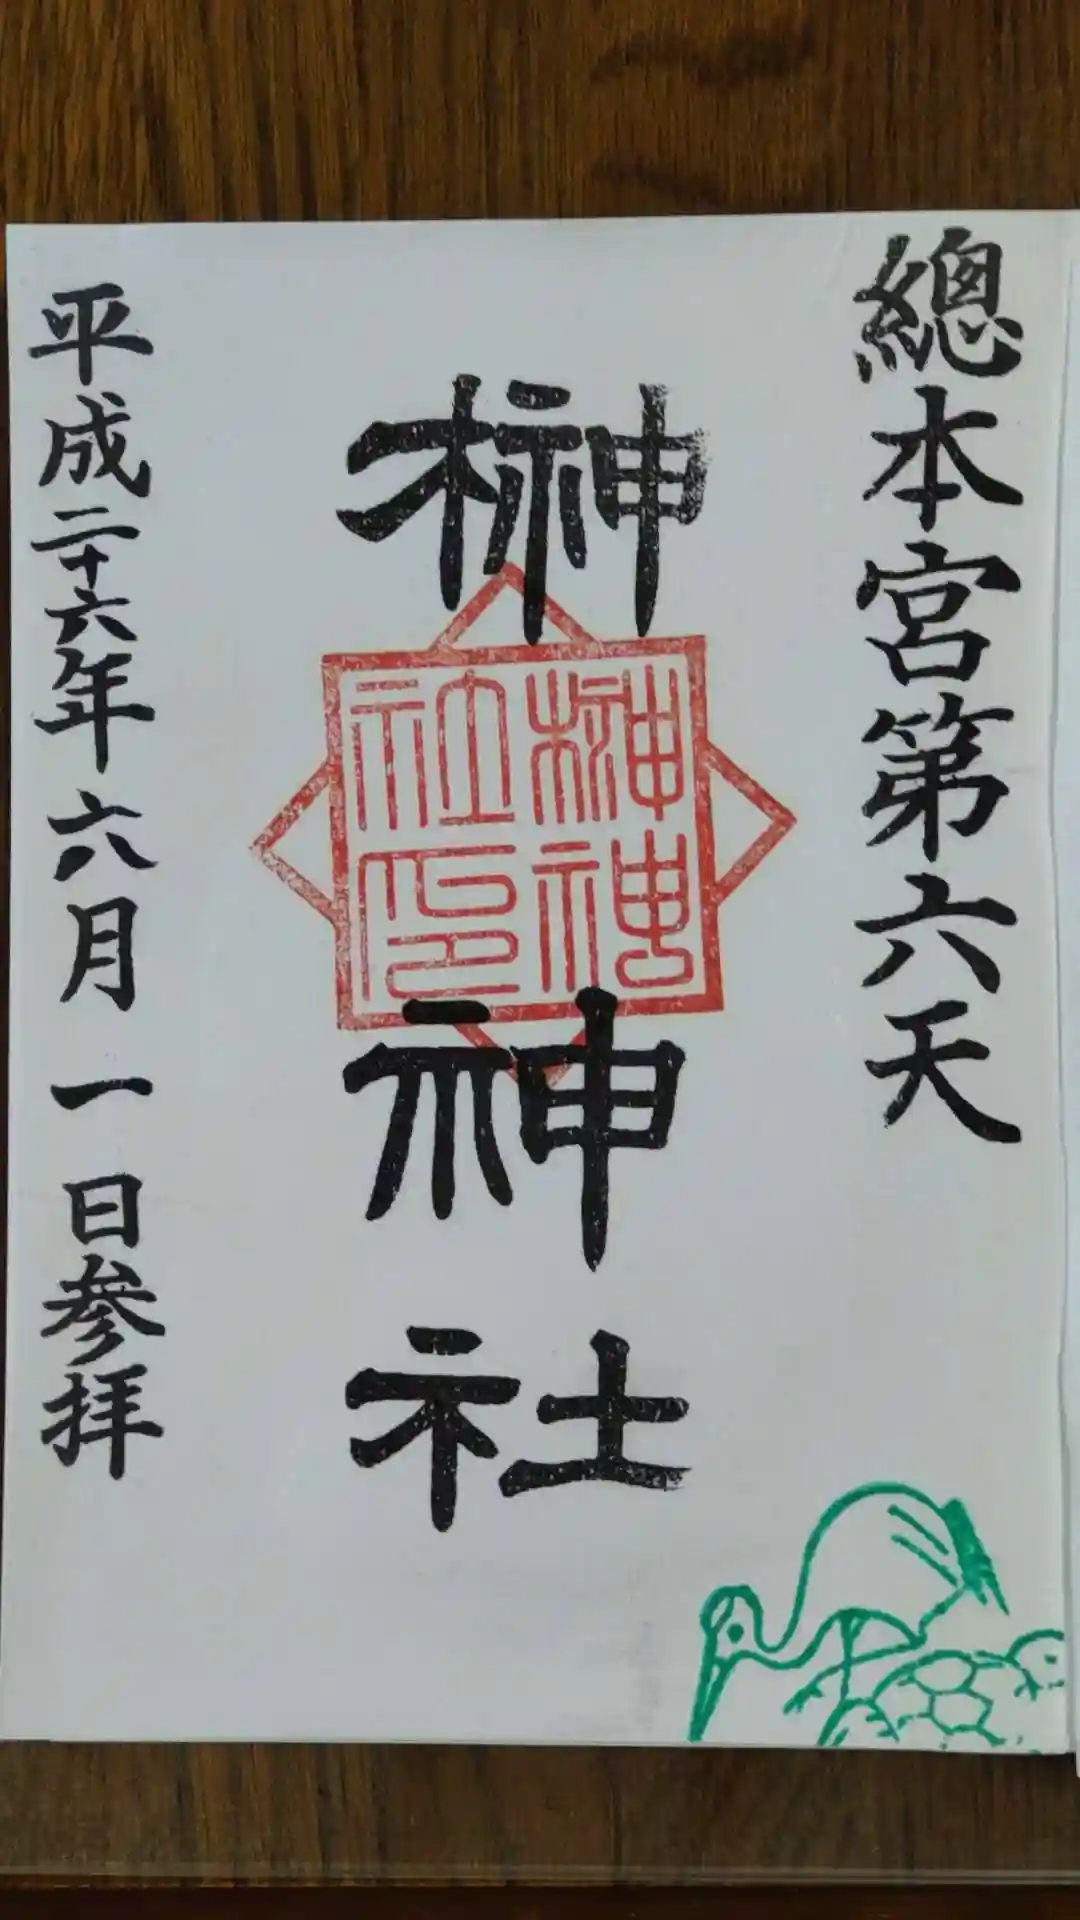 總本宮第六天
榊神社
榊神
社印
平成二十六年六月一日参拝